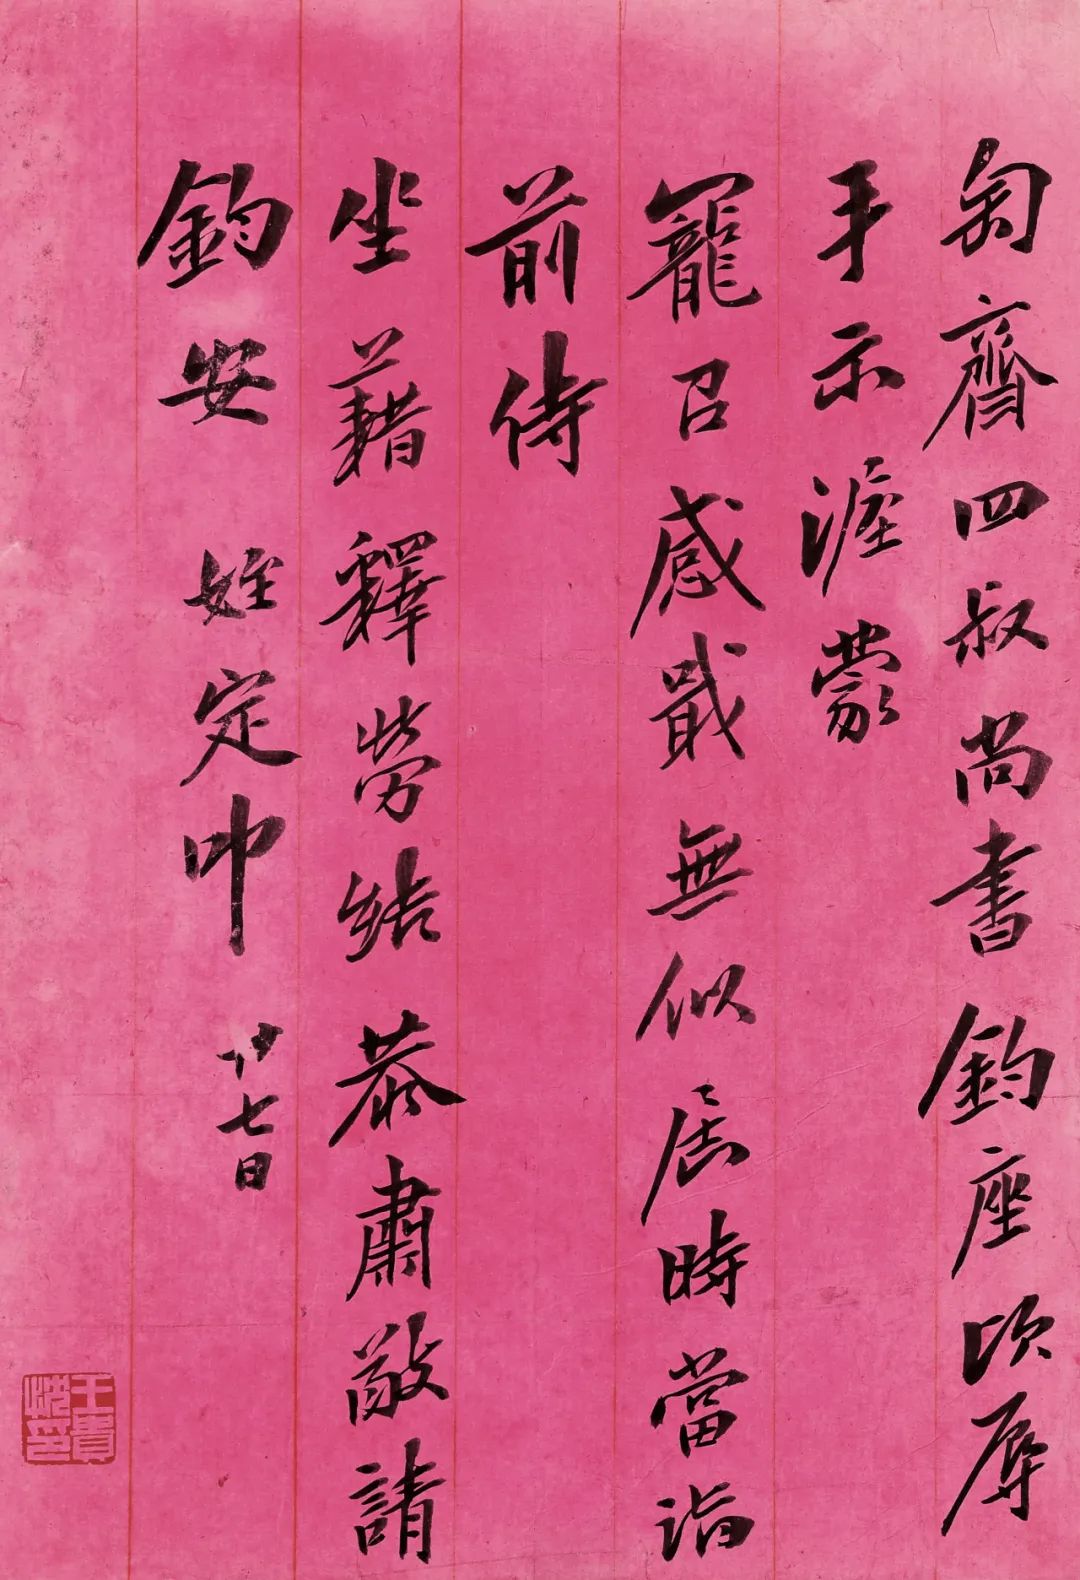 匋齋四叔尚書鈞座頃辱
手示渥蒙
寵召感戢無似屆時當詣
前侍
坐藉釋勞結恭肅敬請
鈞安 姪定叩 廿七日
王貴忱印